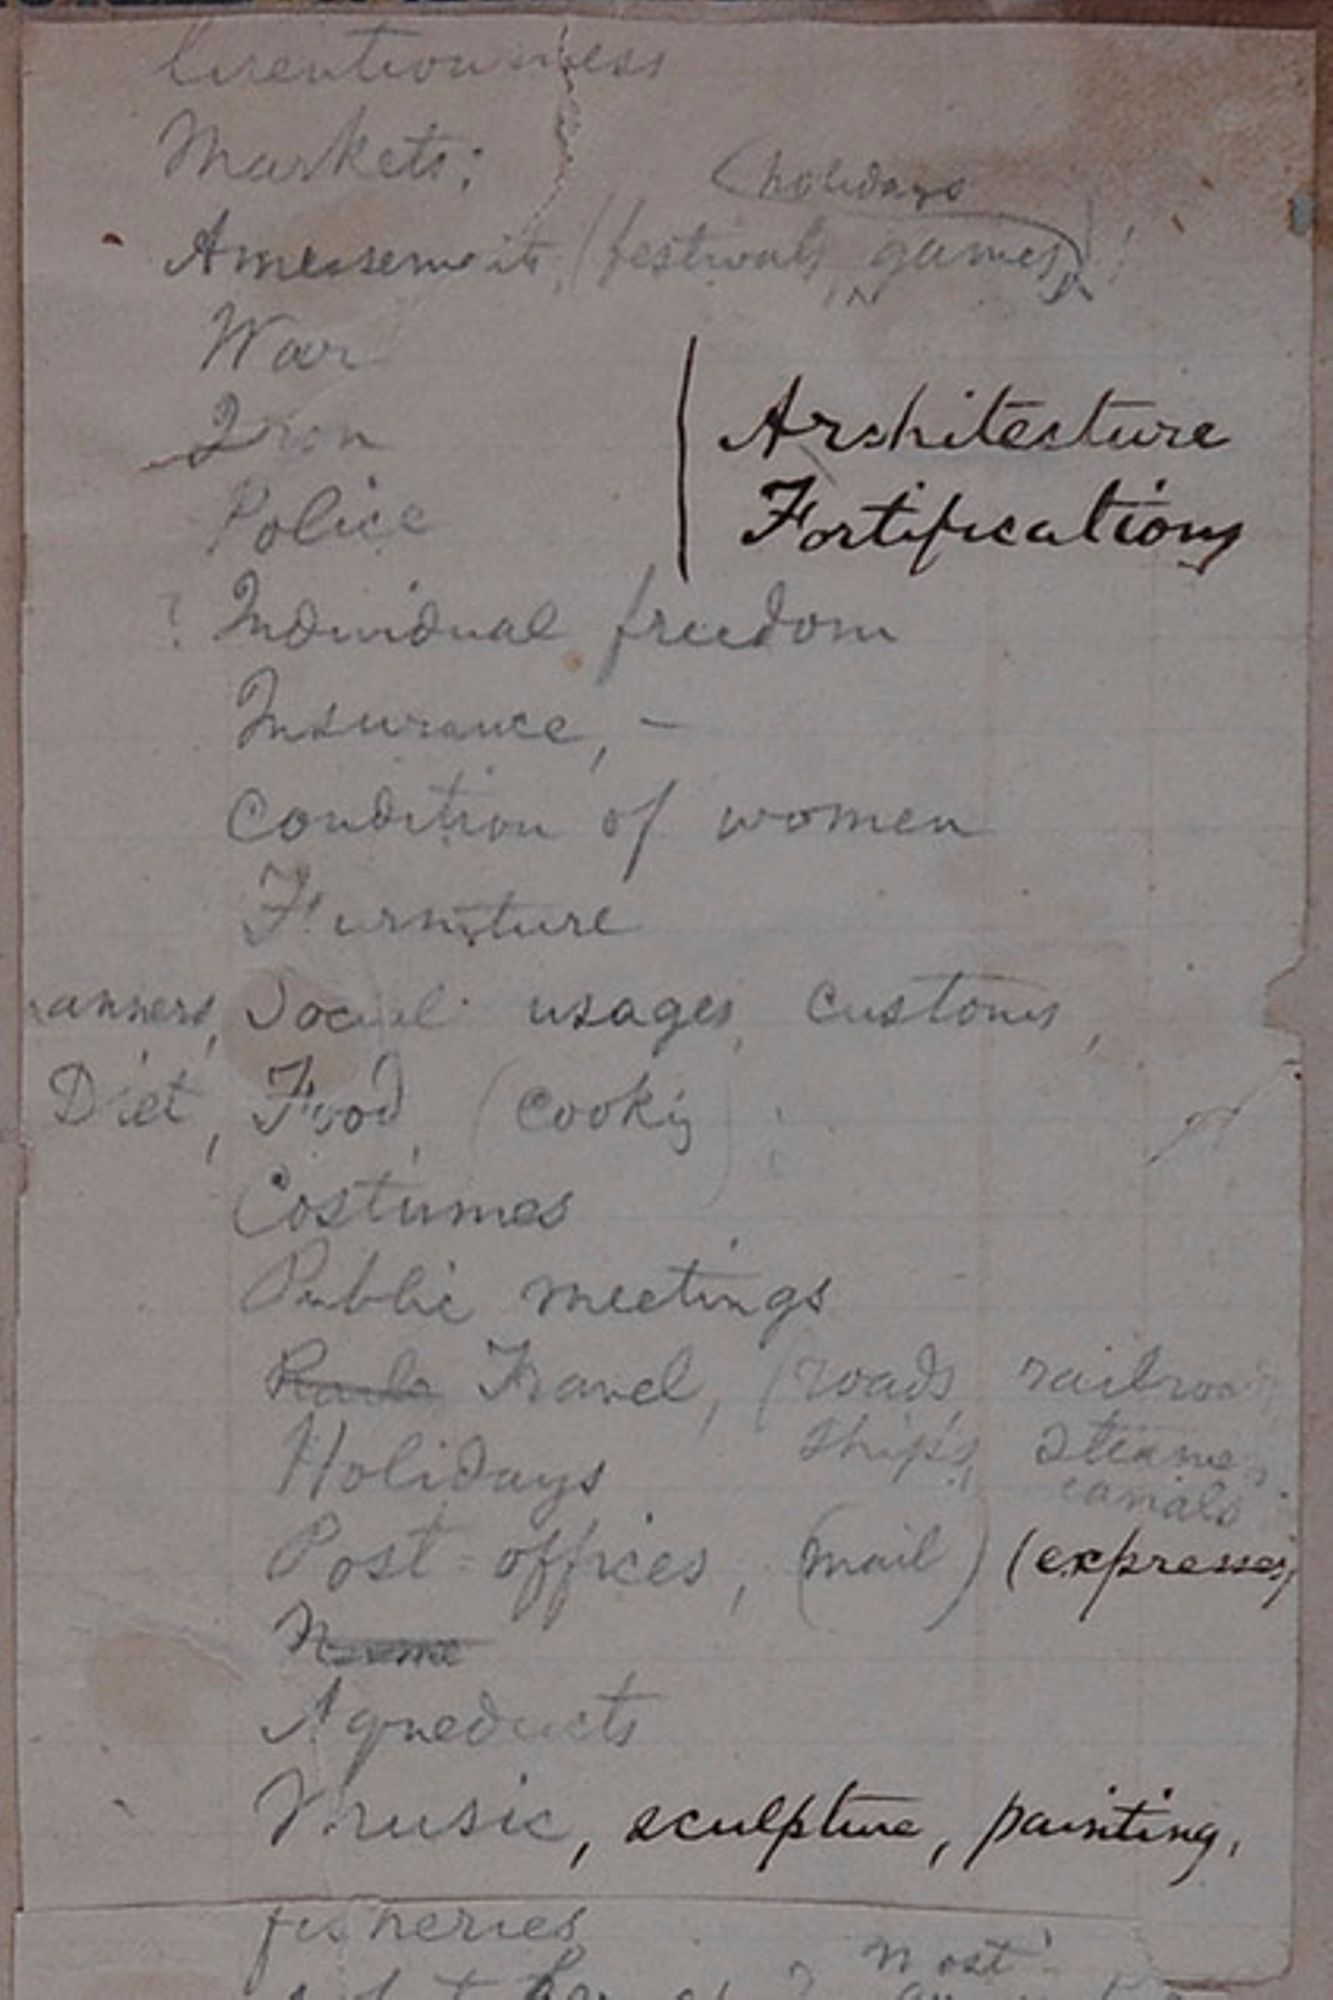 Licentiousness
Markets;
(holidays
Amusements, (festivals, games,)
War
Iron
Architecture
Police
Fortifications
? Individual freedom
Insurance, -
Condition of women
Furniture
anners, Social usages, customs,
Diet, Food, (cookig)
Costumes
Public meetings
Travel, (roads, railroads
ships, steamers,
Holidays
canals
Post-offices, (mail) (expresses,
Name
Aqueducts
Music, sculpture, painting,
fisheries
most